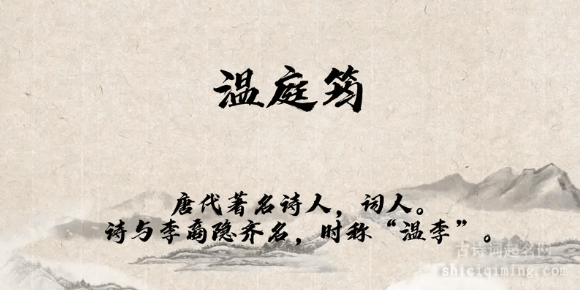 温庭筠
唐代著名诗人，词人。
诗与李商隐齐名，时称“温李”。
古诗词起名网
shiciqiming.com